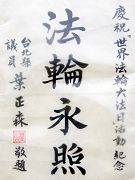 慶祝世界法輪大法日活動紀念
法輪永照
台北縣
議員
葉正森
敬題